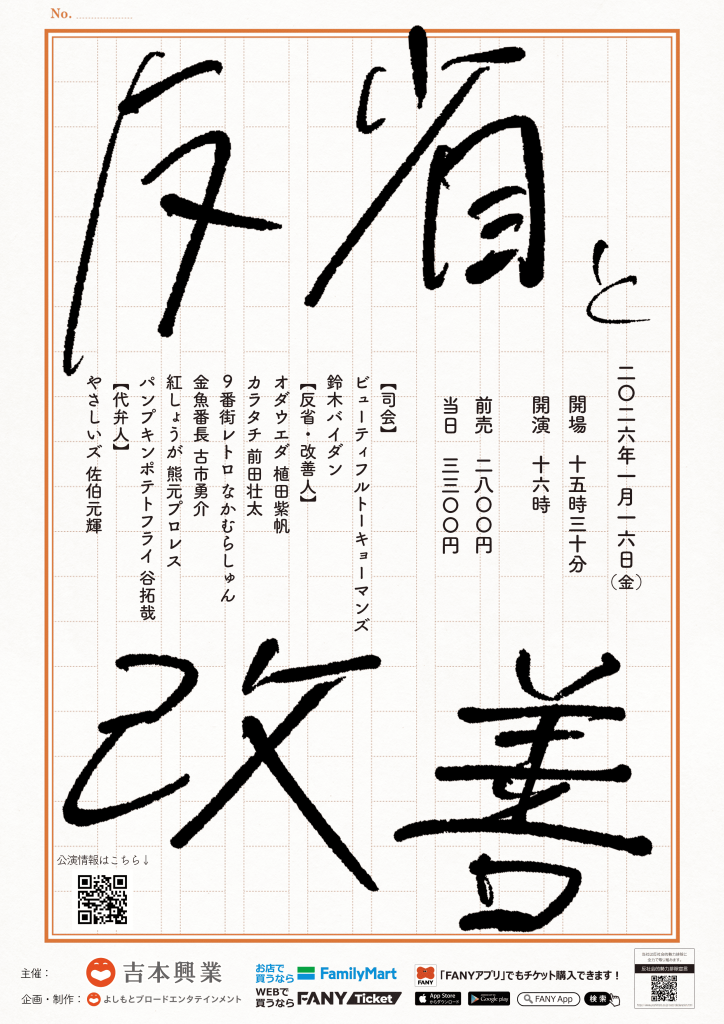 No.
反省と
改善
二〇二六年一月一六日(金)
開場 十五時三十分
開演 十六時
前売 二八〇〇円
当日 三三〇〇円
【司会】
ビューティフルトーキョーマンズ
鈴木バイダン
【反省・改善人】
オダウエダ 植田紫帆
カラタチ 前田壮太
9番街レトロ なかむらしゅん
金魚番長 古市勇介
紅しょうが 熊元プロレス
パンプキンポテトフライ 谷拓哉
【代弁人】
やさしいズ 佐伯元輝
公演情報はこちら↓
主催: 吉本興業
企画・制作: よしもとブロードエンタテインメント
お店で買うなら FamilyMart
WEBで買うなら FANY Ticket
FANY
「FANYアプリ」でもチケット購入できます!
App Store からダウンロード
Google play
FANY App
検索
反社会的勢力排除宣言